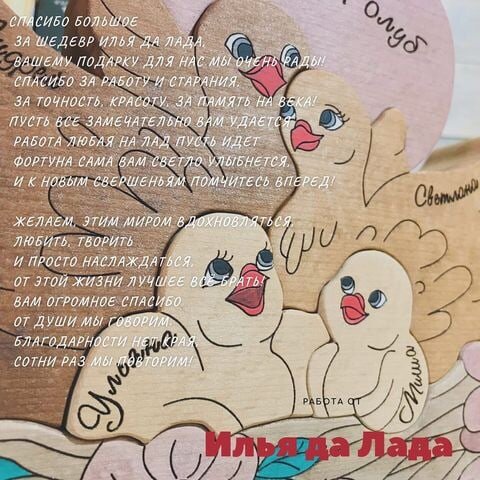 СПАСИБО БОЛЬШОЕ
ЗА ШЕДЕВР ИЛЬЯ ДА ЛАДА,
ВАШЕМУ ПОДАРКУ ДЛЯ НАС МЫ ОЧЕНЬ РАДЫ!
СПАСИБО ЗА РАБОТУ И СТАРАНИЯ,
ЗА ТОЧНОСТЬ, КРАСОТУ, ЗА ПАМЯТЬ НА ВЕКА!
ПУСТЬ ВСЕ ЗАМЕЧАТЕЛЬНО ВАМ УДАЕТСЯ
РАБОТА ЛЮБАЯ НА ЛАД ПУСТЬ ИДЕТ
ФОРТУНА САМА ВАМ СВЕТЛО УЛЫБНЕТСЯ,
И К НОВЫМ СВЕРШЕНЬЯМ ПОМЧИТЕСЬ ВПЕРЕД!
ЖЕЛАЕМ, ЭТИМ МИРОМ ВДОХНОВЛЯТЬСЯ,
ЛЮБИТЬ, ТВОРИТЬ
И ПРОСТО НАСЛАЖДАТЬСЯ,
ОТ ЭТОЙ ЖИЗНИ ЛУЧШЕЕ ВСЕ БРАТЬ!
ВАМ ОГРОМНОЕ СПАСИБО
ОТ ДУШИ МЫ ГОВОРИМ,
БЛАГОДАРНОСТИ НЕТ КРАЯ,
СОТНИ РАЗ МЫ ПОВТОРИМ!
Светлана
Ульяна
Миша
РАБОТА ОТ
Илья да Лада